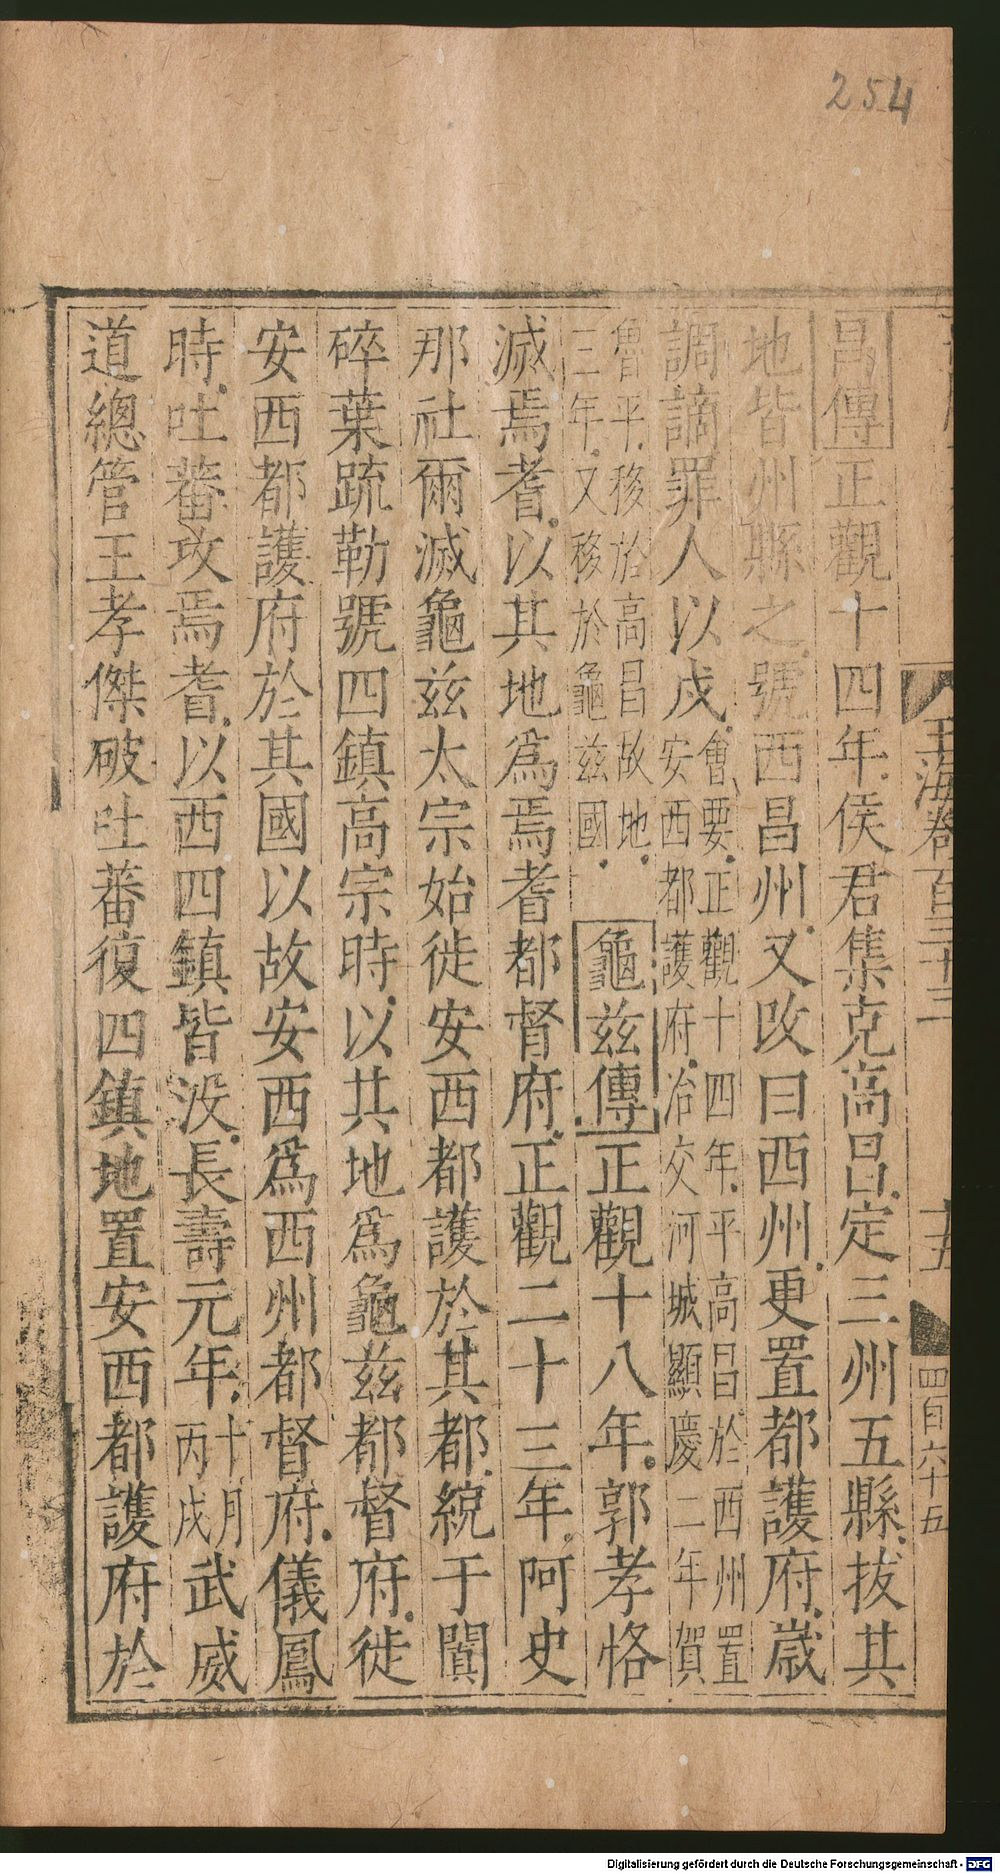 254
玉海卷百三十三
十五
四百六十五
昌傳正觀十四年侯君集克高昌定三州五縣拔其
地皆州縣之號西昌州又改曰西州更置都護府歲
調謫罪人以戍會要正觀十四年平高昌於西州置
安西都護府治交河城顯慶二年賀
魯平移於高昌故地
三年又移於龜兹國龜兹傳正觀十八年郭孝恪
滅焉耆以其地爲焉耆都督府正觀二十三年阿史
那社爾滅龜兹太宗始徙安西都護於其都統于闐
碎葉疏勒號四鎮高宗時以其地爲龜兹都督府徙
安西都護府於其國以故安西爲西州都督府儀鳳
時吐蕃攻焉耆以西四鎮皆没長壽元年十月丙戌武威
道總管王孝傑破吐蕃復四鎮地置安西都護府於
Digitalisierung gefördert durch die Deutsche Forschungsgemeinschaft - DFG